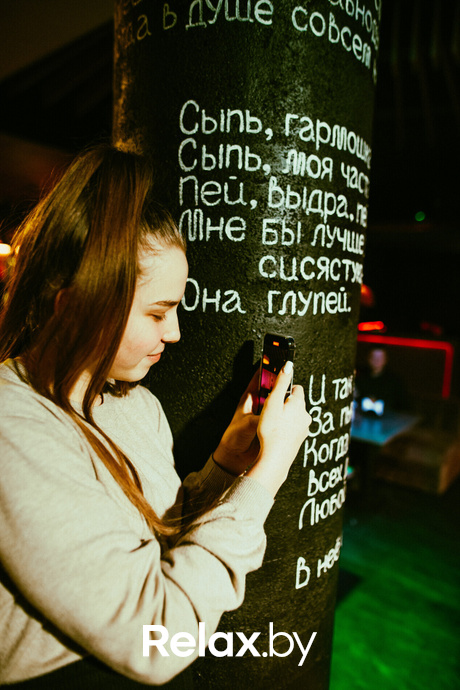 да в душе совсем
Сыпь, гармошка
Сыпь, моя част
Пей, выдра, пе
Мне бы лучше
сисястую
Она глупей.
И так
За
Когда
всех
Любо
В неё
Relax.by